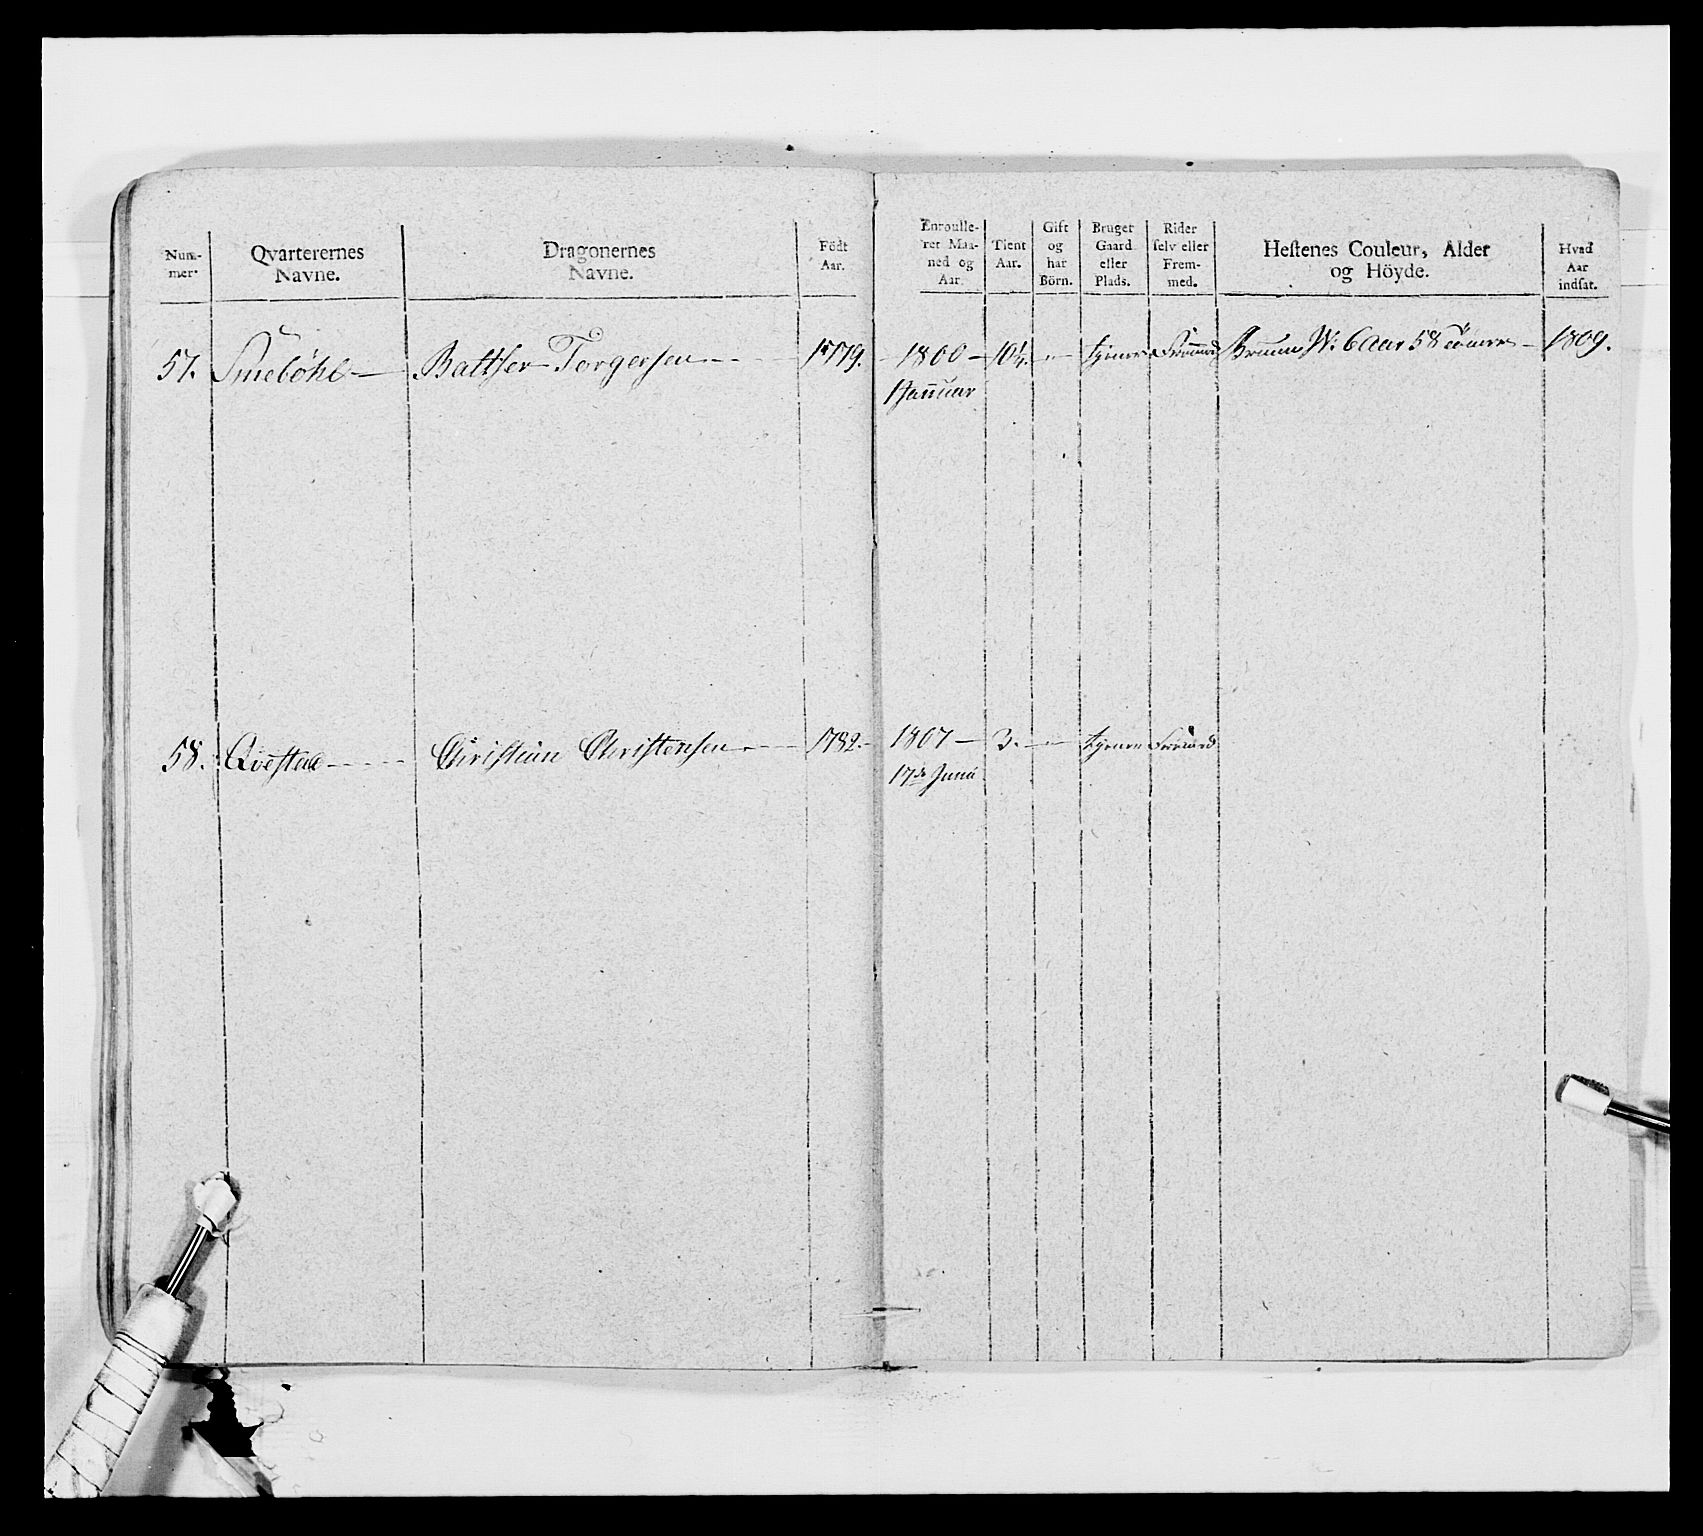 Num-
mer.
Qvarterernes
Navne.
Dragonernes
Navne.
Födt
Aar.
Enroulle-
ret Maa-
ned og
Aar.
Tient
Aar.
Gift
og
har
Börn.
Bruger
Gaard
eller
Plads.
Rider
selv eller
Frem-
med.
Hestenes Couleur, Alder
og Höyde.
Hvad
Aar
indsat.
57. Smeböhl Batlser Torgersen 1779. 1800 10½ tjener Fremed Bruun W: 6 Aar 58 1809.
1 Januar
58. Qvestad Christian Christensen 1782. 1807 3. tjener Fremed
17de Juni